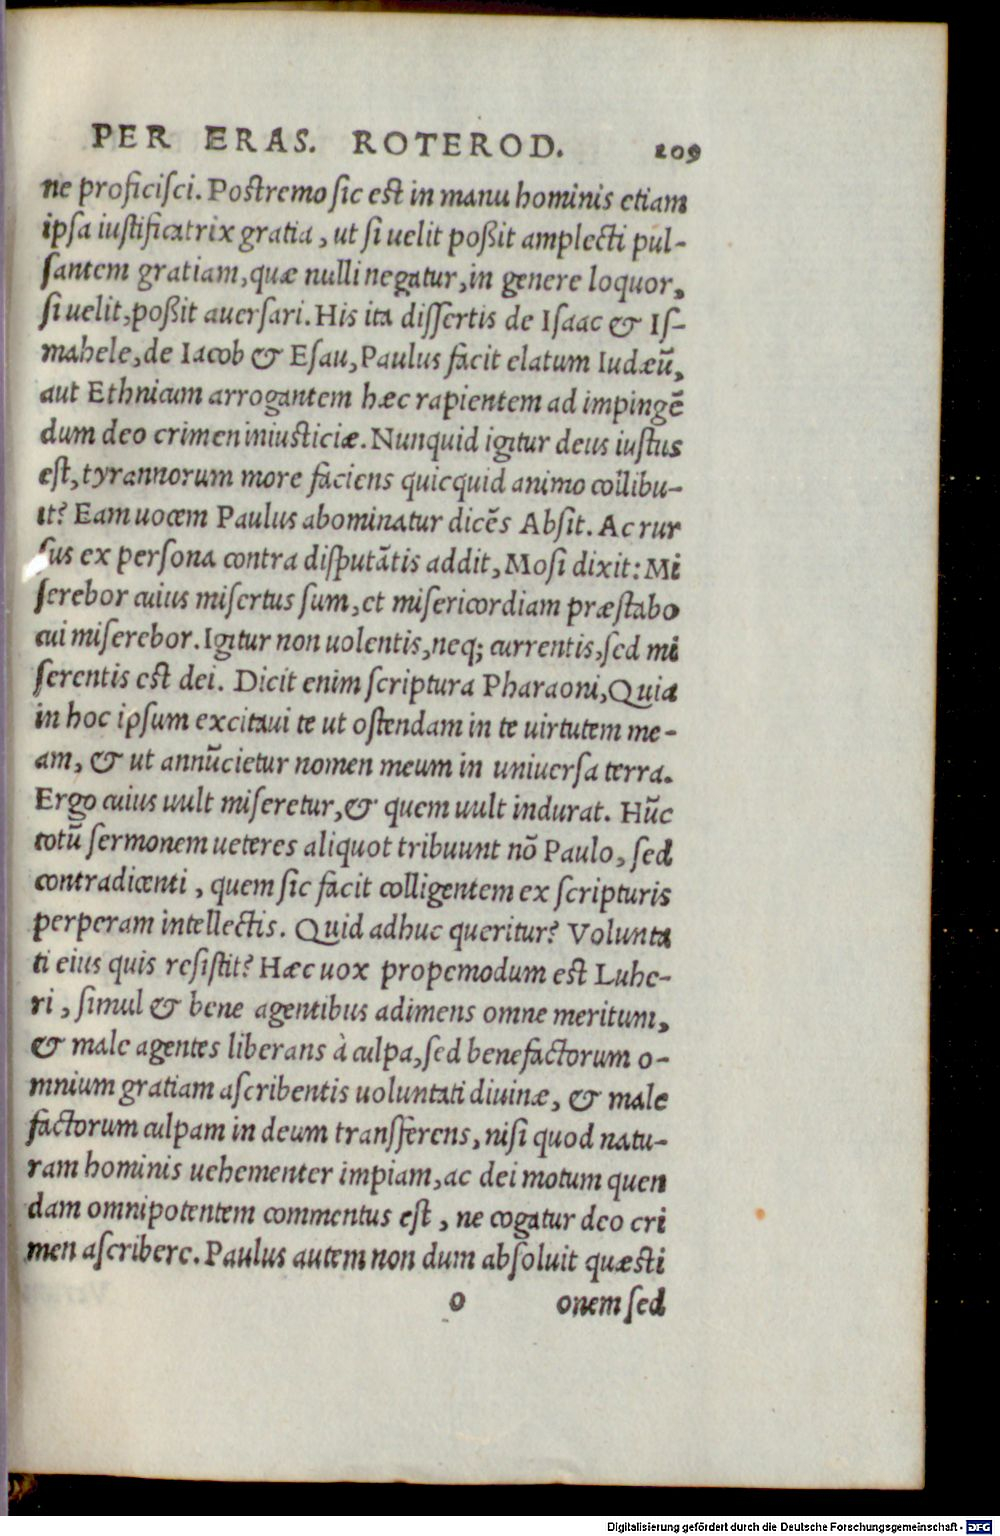 PER ERAS. ROTEROD. 209
ne proficisci. Postremo sic est in manu hominis etiam
ipsa iustificatrix gratia, ut si uelit poßit amplecti pul-
santem gratiam, quæ nulli negatur, in genere loquor,
si uelit, poßit auersari. His ita dissertis de Isaac & Is-
mahele, de Iacob & Esau, Paulus facit elatum Iudæũ,
aut Ethnicum arrogantem hæc rapientem ad impingẽ
dum deo crimen iniusticiæ. Nunquid igitur deus iustus
est, tyrannorum more faciens quicquid animo collibu-
it? Eam uocem Paulus abominatur dicẽs Absit. Ac rur
sus ex persona contra disputãtis addit, Mosi dixit: Mi
serebor cuius misertus sum, et misericordiam præstabo
cui miserebor. Igitur non uolentis, neq; currentis, sed mi
serentis est dei. Dicit enim scriptura Pharaoni, Quia
in hoc ipsum excitaui te ut ostendam in te uirtutem me-
am, & ut annũcietur nomen meum in uniuersa terra.
Ergo cuius uult miseretur, & quem uult indurat. Hũc
totũ sermonem ueteres aliquot tribuunt nõ Paulo, sed
contradicenti, quem sic facit colligentem ex scripturis
perperam intellectis. Quid adhuc queritur? Volunta
ti eius quis resistit? Hæc uox propemodum est Luhe-
ri, simul & bene agentibus adimens omne meritum,
& male agentes liberans à culpa, sed benefactorum o-
mnium gratiam ascribentis uoluntati diuinæ, & male
factorum culpam in deum transferens, nisi quod natu-
ram hominis uehementer impiam, ac dei motum quen
dam omnipotentem commentus est, ne cogatur deo cri
men ascribere. Paulus autem non dum absoluit quæsti
o onem sed
Digitalisierung gefördert durch die Deutsche Forschungsgemeinschaft - DFG